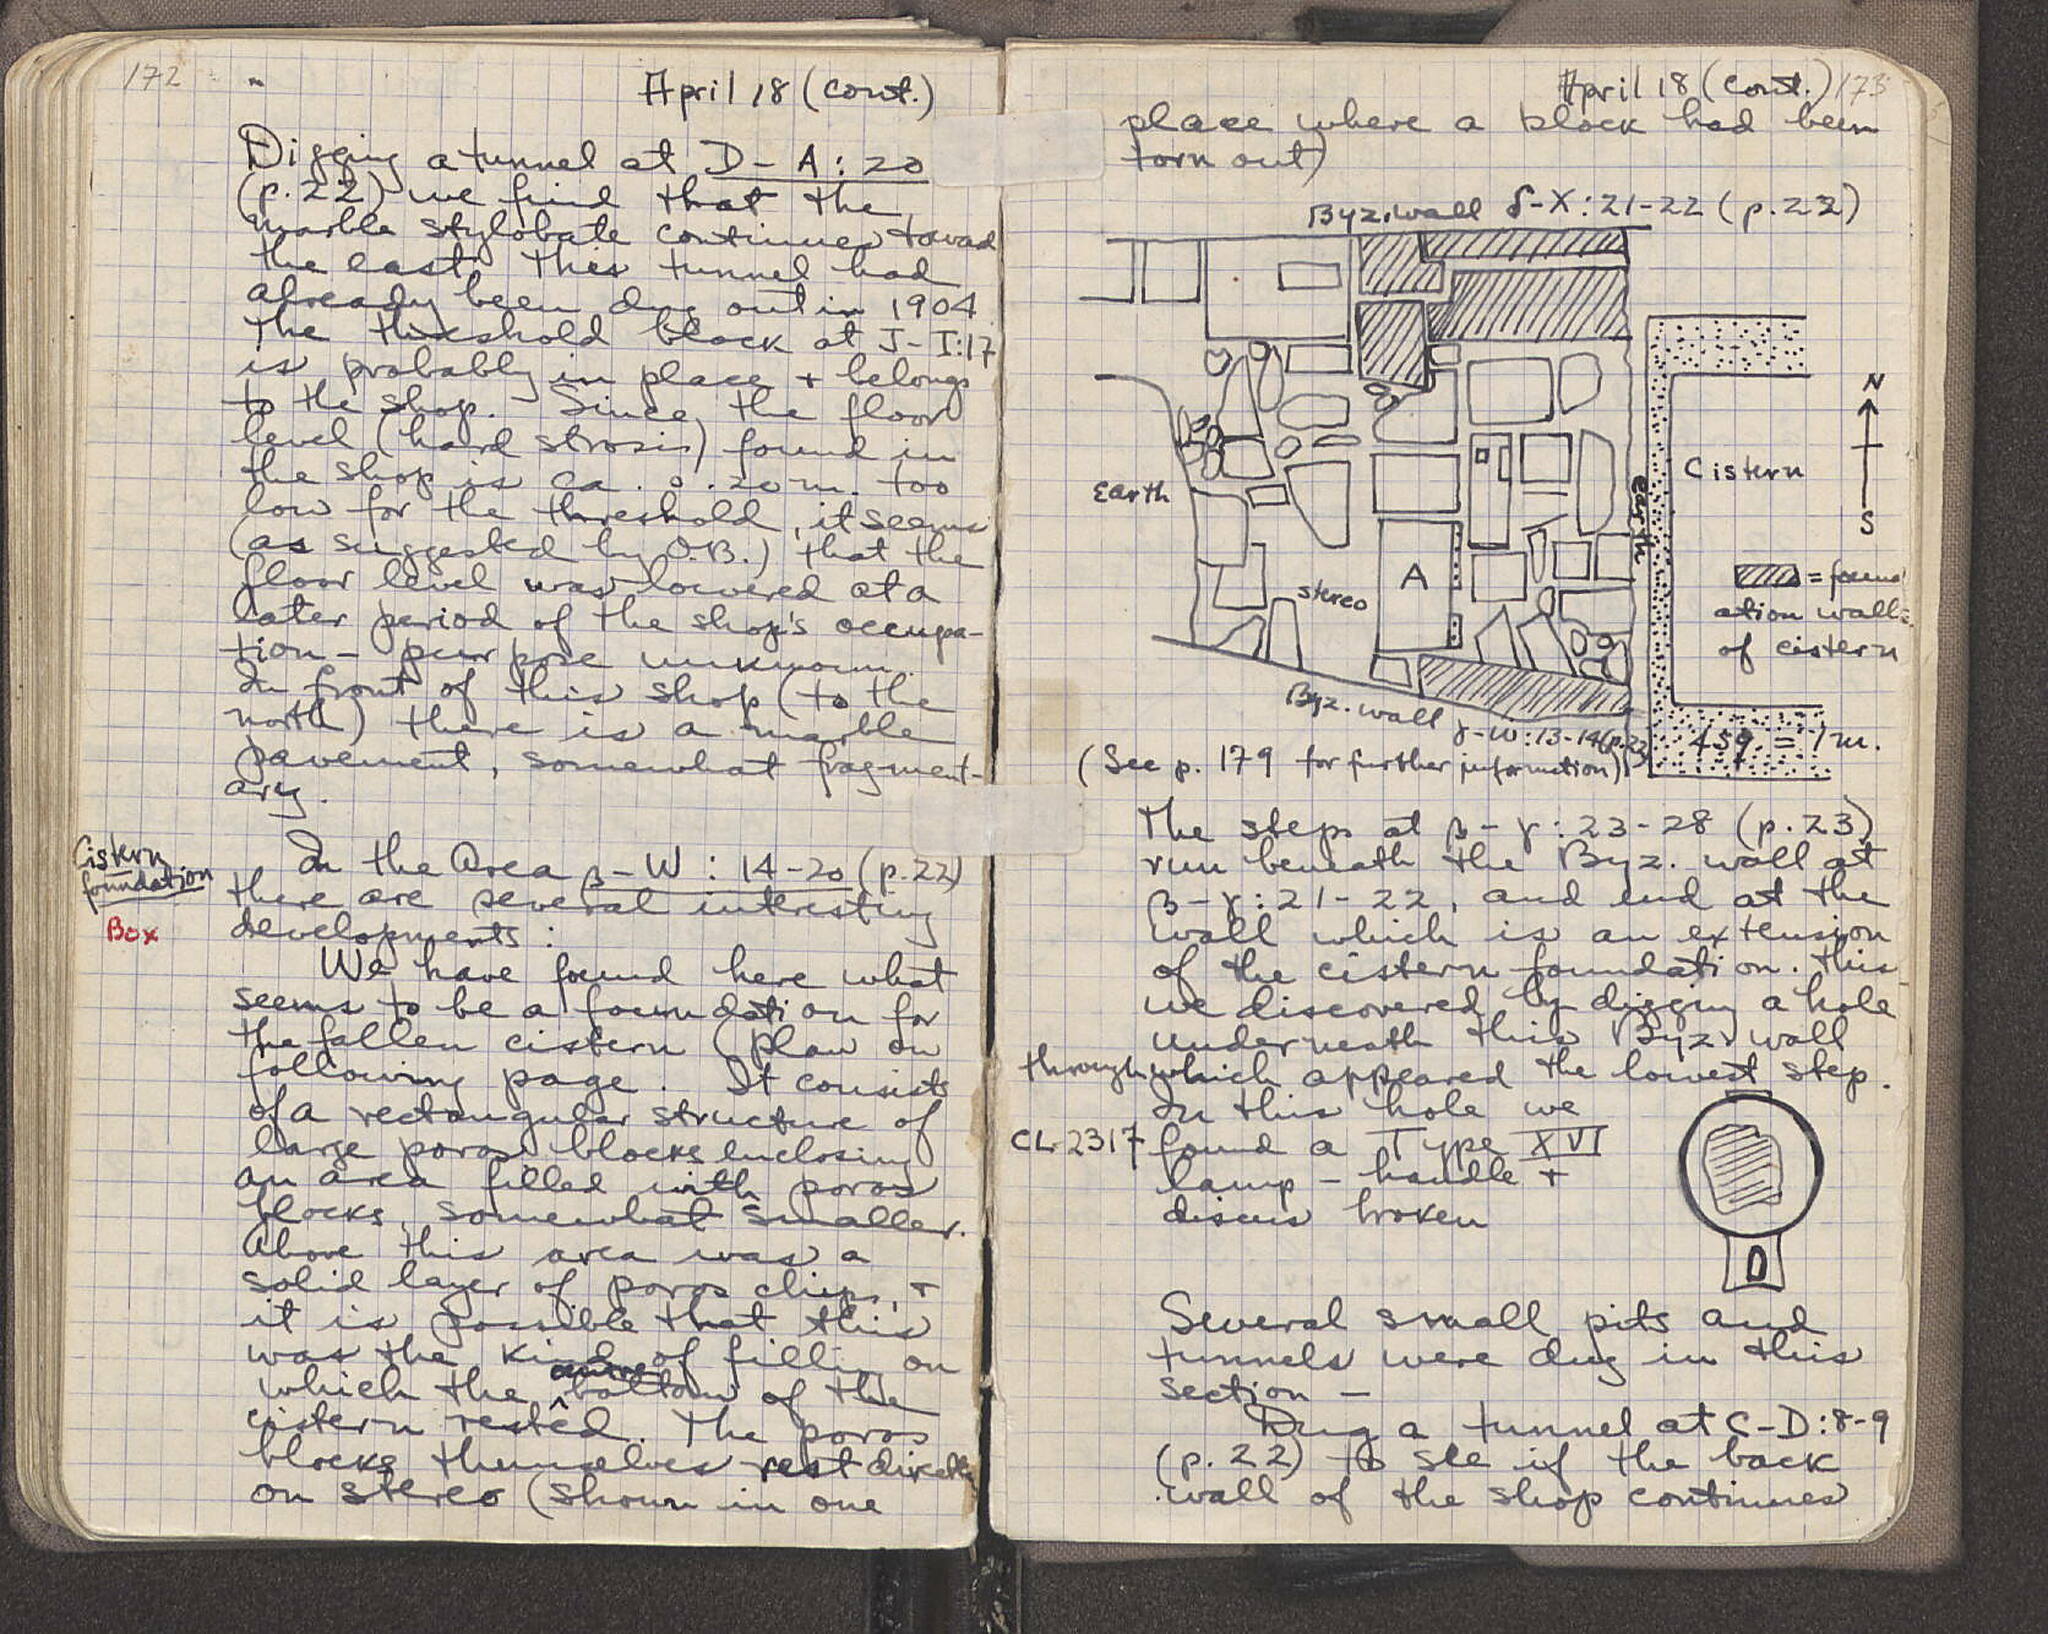 172
April 18 (cont.)
Digging a tunnel at D-A:20
(p.22) we find that the
marble stylobate continues toward
the east. This tunnel had
already been dug out in 1904
The threshold block at J-I:17
is probably in place + belongs
to the shop. Since the floor
level (hard strosis) found in
the shop is ca. 0.20 m. too
low for the threshold, it seems
(as suggested by O.B.) that the
floor level was lowered at a
later period of the shop's occupa-
tion - purpose unknown.
In front of this shop (to the
north) there is a marble
pavement, somewhat fragment-
ary.
Cistern
foundation
Box
In the area β-W : 14-20 (p.22)
there are several interesting
developments :
We have found here what
seems to be a foundation for
the fallen cistern (plan on
following page. It consists
of a rectangular structure of
large poros blocks enclosing
an area filled with poros
blocks, somewhat smaller.
Above this area was a
solid layer of poros chips, +
it is possible that this
was the kind of filling on
which the bottom of the
cistern rested. The poros
blocks themselves rest directly
on stereo (shown in one
April 18 (cont.) 173
place where a block had been
torn out)
Byz. wall δ-X:21-22 (p.22)
N
S
Earth
Cistern
earth
A
stereo
= found
ation walls
of cistern
Byz. wall γ-W:13-14 (p.22)
459 = 1 m.
(See p. 179 for further information)
The steps at β-γ:23-28 (p.23)
run beneath the Byz. wall at
β-γ:21-22, and end at the
wall which is an extension
of the cistern foundation. This
we discovered by digging a hole
underneath this Byz. wall
through which appeared the lowest step.
In this hole we
CL 2317 found a Type XVI
lamp - handle +
discus broken
Several small pits and
tunnels were dug in this
section -
Dug a tunnel at C-D:8-9
(p.22) to see if the back
wall of the shop continues